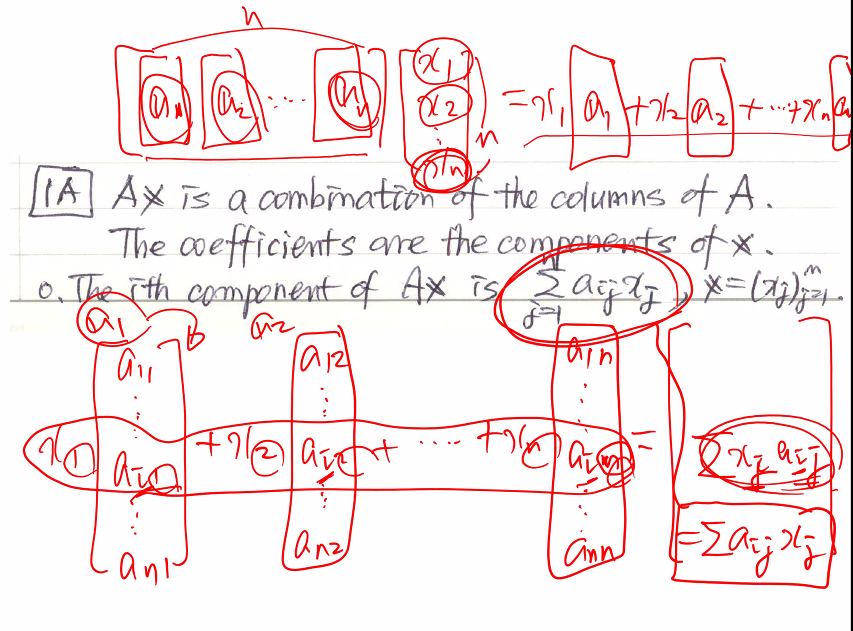 n
[ a₁ a₂ ⋯ aₙ ] [ x₁ x₂ ⋮ xₙ ] n = x₁ a₁ + x₂ a₂ + ⋯ + xₙ
1A Ax is a combination of the columns of A.
The coefficients are the components of x.
o. The ith component of Ax is ∑ⁿⱼ₌₁ aᵢⱼxⱼ, x=(xⱼ)ⁿⱼ₌₁.
a₁ a₂
a₁₁ a₁₂ a₁ₙ
⋮ ⋮ ⋮
x₁ aᵢ₁ + x₂ aᵢ₂ + ⋯ + xₙ aᵢₙ = ∑ xⱼ aᵢⱼ
⋮ ⋮ ⋮
aₙ₁ aₙ₂ aₙₙ = ∑ aᵢⱼ xⱼ